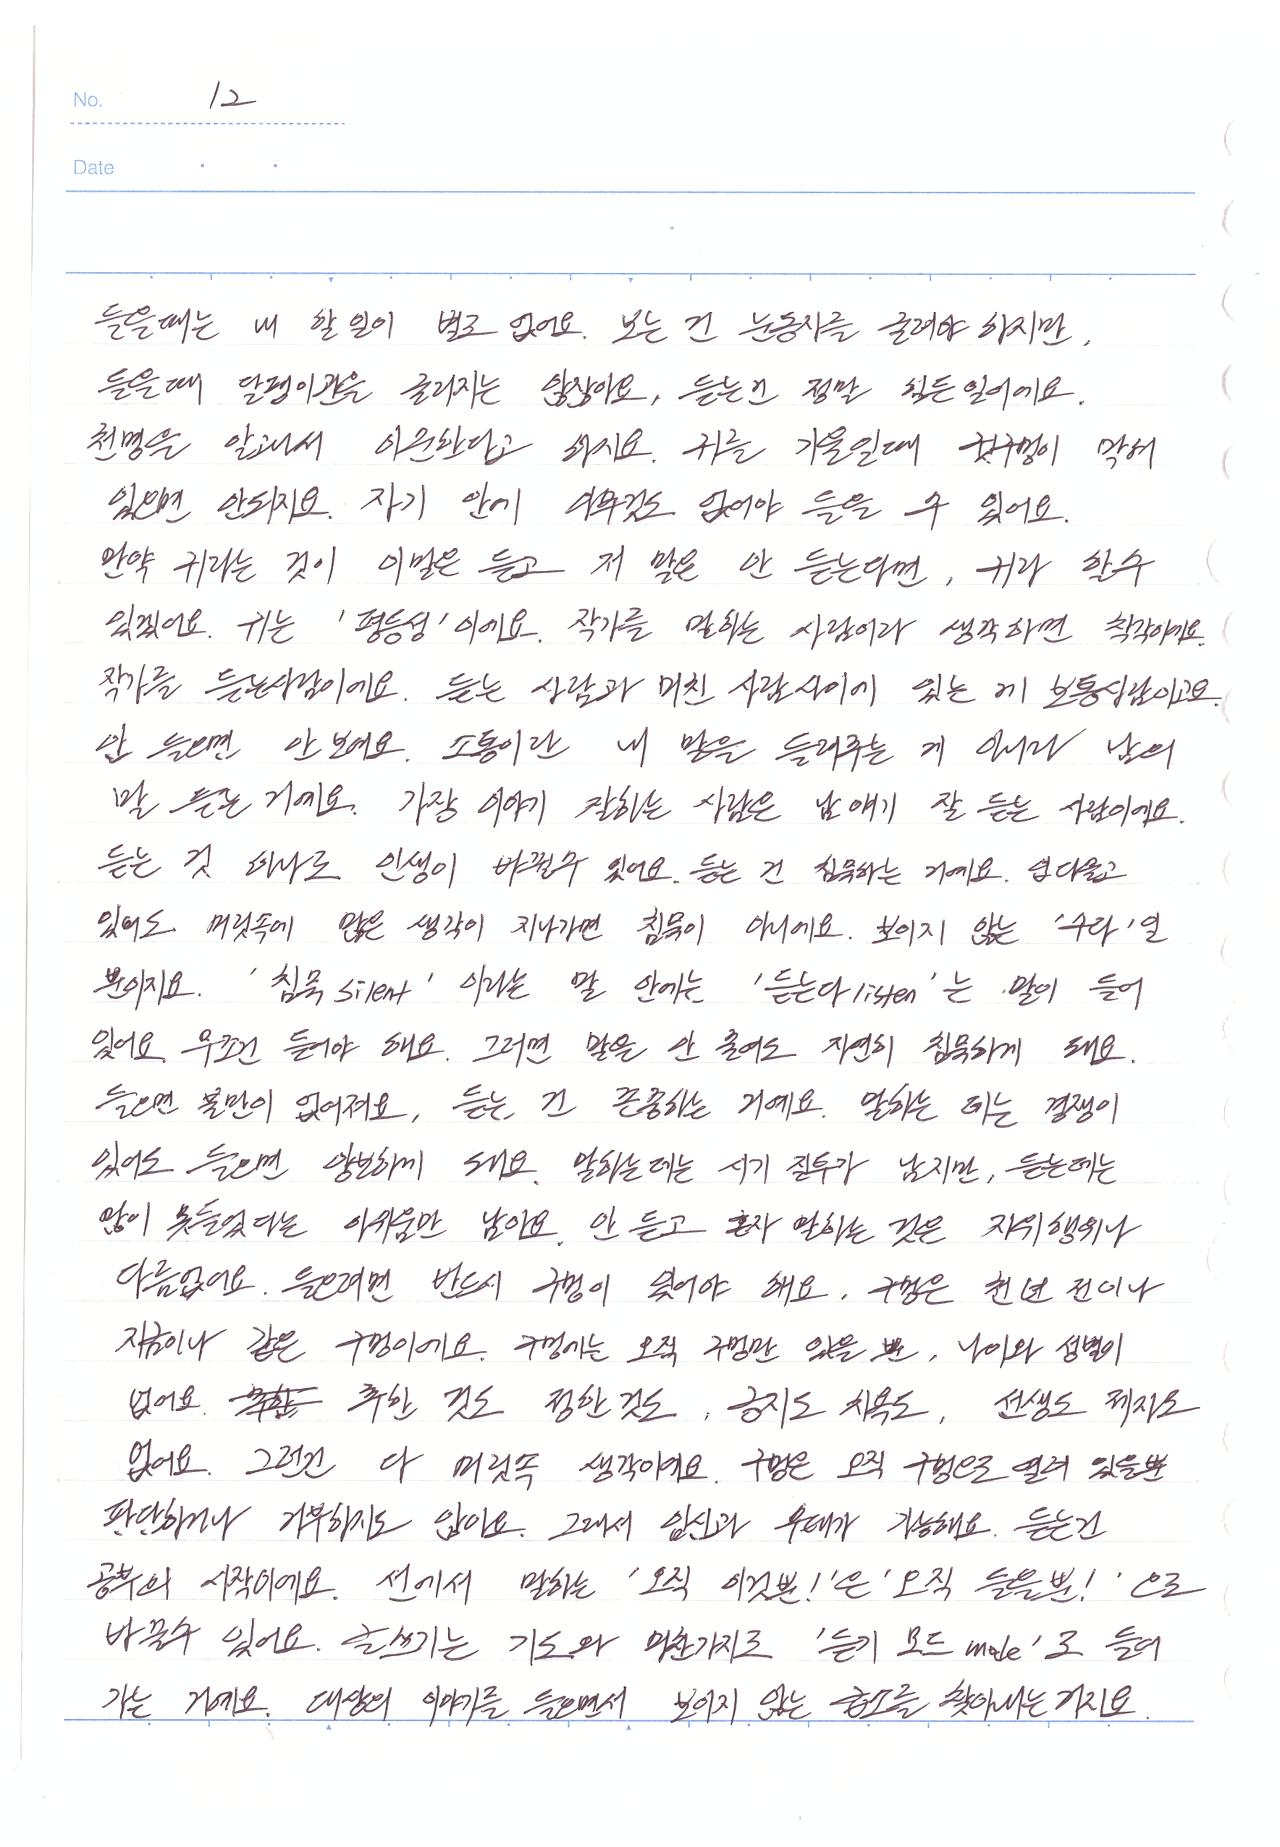 No. 12
Date
들을때는 내 할 일이 별로 없어요. 보는 건 눈동자를 굴려야 하지만,
들을때 달팽이관을 굴리지는 않잖아요, 듣는건 정말 힘든일이에요.
천명을 알고나서 이순한다고 하지요. 귀를 기울일때 귓구멍이 막혀
있으면 안되지요. 자기 안에 아무것도 없어야 들을 수 있어요.
만약 귀라는 것이 이말은 듣고 저 말은 안 듣는다면, 귀라 할수
있겠어요. 귀는 '평등성'이에요. 작가를 말하는 사람이라 생각하면 착각이에요.
작가를 듣는사람이에요. 듣는 사람과 미친 사람사이에 있는 게 보통사람이고요.
안 들으면 안보여요. 소통이란 내 말을 들려주는 게 아니라 남의
말 듣는 거예요. 가장 이야기 잘하는 사람은 남 얘기 잘 듣는 사람이에요.
듣는 것 하나로 인생이 바뀔수 있어요. 듣는 건 침묵하는 거예요. 입다물고
있어도 머릿속에 많은 생각이 지나가면 침묵이 아니에요. 보이지 않는 '수다'일
뿐이지요. '침묵 silent' 이라는 말 안에는 '듣는다 listen'는 말이 들어
있어요. 무조건 들어야 해요. 그러면 말은 안 줄여도 자연히 침묵하게 돼요.
들으면 불만이 없어져요, 듣는 건 존중하는 거예요. 말하는 데는 경쟁이
있어도 들으면 양보하게 돼요. 말하는데는 시기 질투가 남지만, 듣는데는
많이 못들었다는 아쉬움만 남아요. 안 듣고 혼자 말하는 것은 자위행위나
다름없어요. 들으려면 반드시 구멍이 있어야 해요. 구멍은 천년 전이나
지금이나 같은 구멍이에요. 구멍에는 오직 구멍만 있을 뿐, 나이와 성별이
없어요. 추한 것도 정한것도, 긍지도 치욕도, 선생도 제자도
없어요. 그런건 다 머릿속 생각이에요. 구멍은 오직 구멍으로 열려 있을뿐
판단하거나 거부하지도 않아요. 그래서 임신과 우대가 가능해요. 듣는건
공부의 시작이에요. 선에서 말하는 '오직 이것뿐!'은 '오직 들을뿐!'으로
바꿀수 있어요. 글쓰기는 기도와 마찬가지로 '듣기 모드 mode'로 들어
가는 거예요. 대상의 이야기를 들으면서 보이지 않는 급소를 찾아내는거지요.